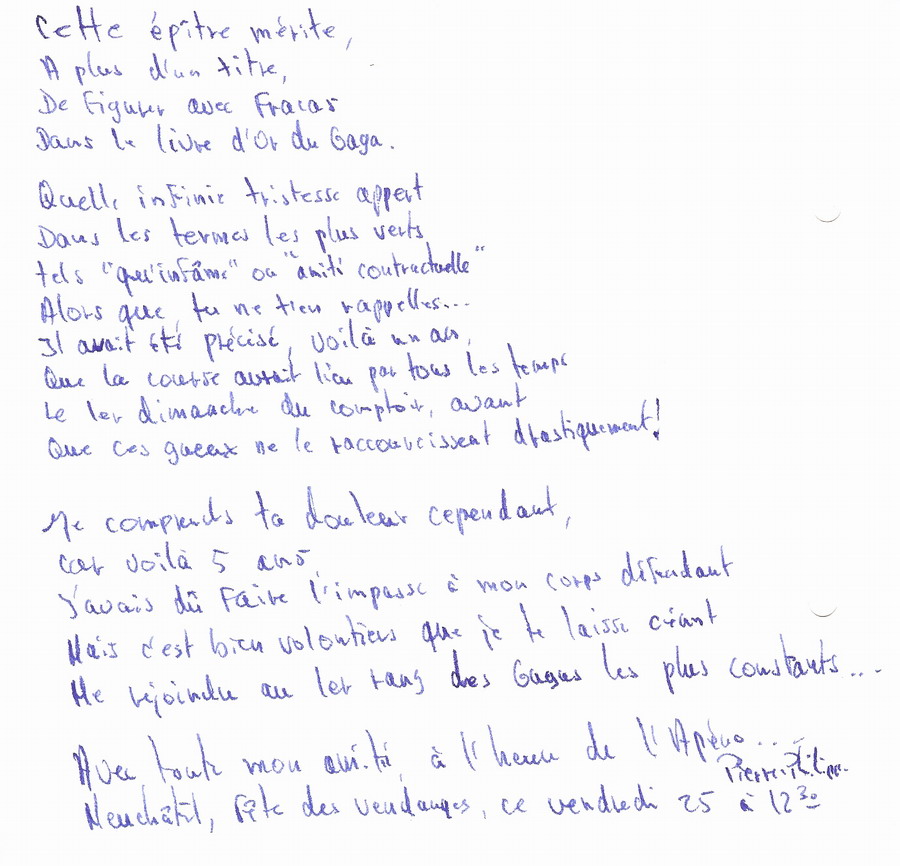 Cette épître mérite,
A plus d'un titre,
De Figurer avec Fracas
Dans le livre d'Or du Gaga.
Quelle inFinie tristesse appert
Dans les termes les plus verts
tels "qu'infâme" ou "amitié contractuelle"
Alors que, tu ne t'en rappelles...
Il avait été précisé, voilà un an,
Que la course aurait lieu par tous les temps
Le 1er dimanche du comptoir, avant
Que ces gueux ne le raccourcissent drastiquement!
Je comprends ta douleur cependant,
car voilà 5 ans,
J'avais dû Faire l'impasse à mon corps défendant
Mais c'est bien volontiers que je te laisse céant
Me rejoindre au 1er rang des Gagas les plus constants...
Avec toute mon amitié, à l'heure de l'Apéro...
Pierre-Philippe
Neuchâtel, Fête des vendanges, ce vendredi 25 à 12 30